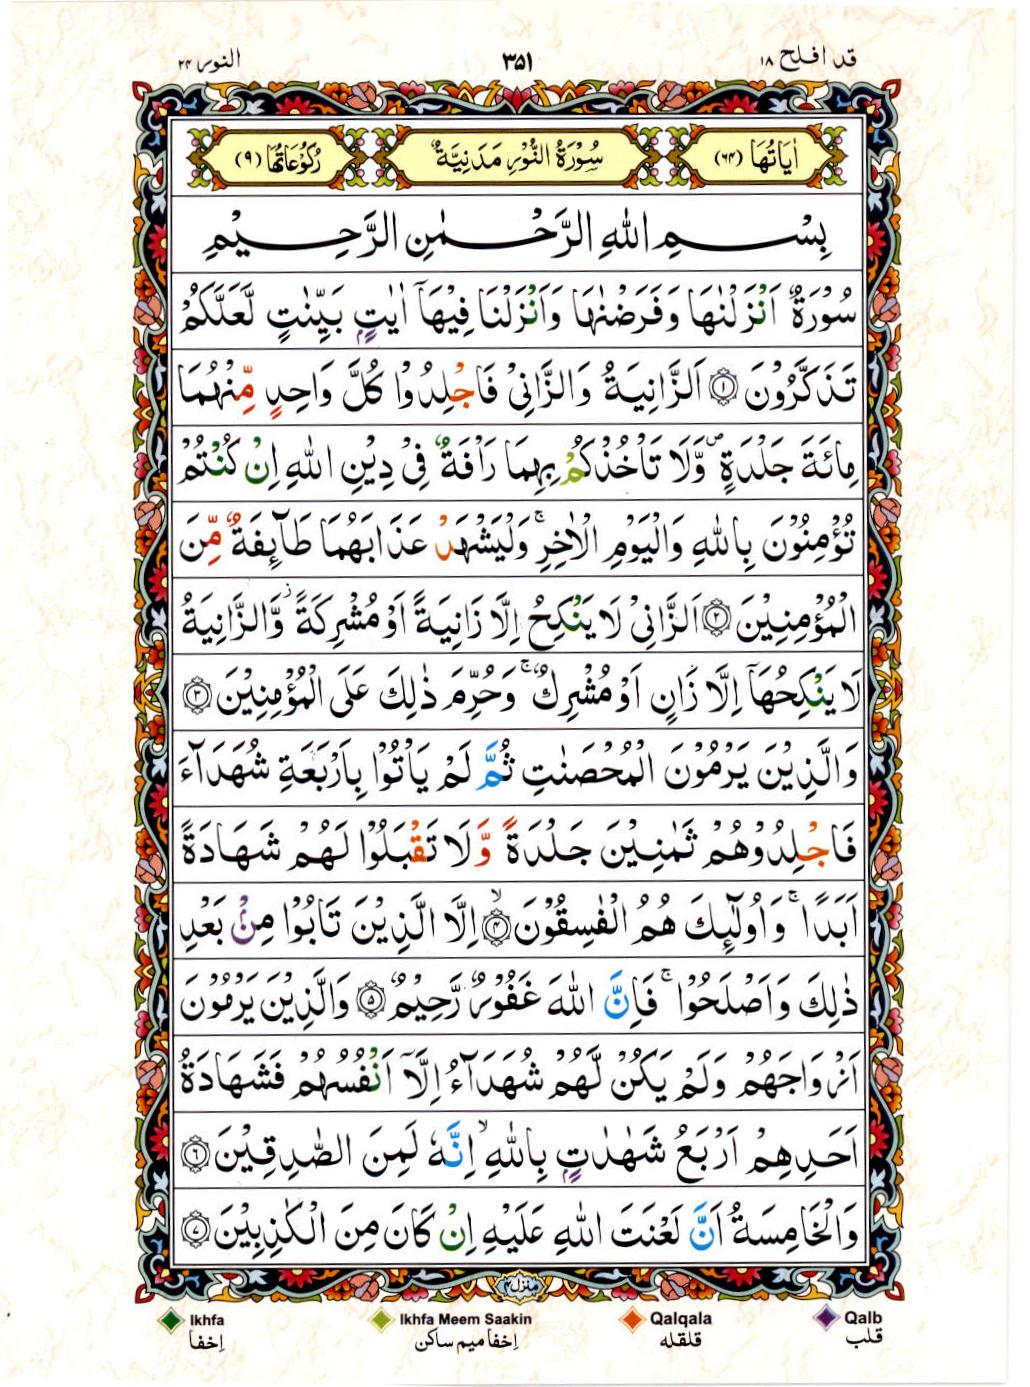 قد افلح ۱۸
۳۵۱
النور ۲۴
اٰیَاتُهَا (۶۴)
سُوْرَةُ النُّوْرِ مَدَنِیَّةٌ
رُكُوْعَاتُهَا (۹)
بِسْمِ اللهِ الرَّحْمٰنِ الرَّحِیْمِ
سُوْرَةٌ اَنْزَلْنٰهَا وَفَرَضْنٰهَا وَاَنْزَلْنَا فِیْهَاۤ اٰیٰتٍۭ بَیِّنٰتٍ لَّعَلَّكُمْ
تَذَكَّرُوْنَ ۝۱ اَلزَّانِیَةُ وَالزَّانِیْ فَاجْلِدُوْا كُلَّ وَاحِدٍ مِّنْهُمَا
مِائَةَ جَلْدَةٍ۪ وَّلَا تَاْخُذْكُمْ بِهِمَا رَاْفَةٌ فِیْ دِیْنِ اللهِ اِنْ كُنْتُمْ
تُؤْمِنُوْنَ بِاللهِ وَالْیَوْمِ الْاٰخِرِۚ وَلْیَشْهَدْ عَذَابَهُمَا طَآئِفَةٌ مِّنَ
الْمُؤْمِنِیْنَ ۝۲ اَلزَّانِیْ لَا یَنْكِحُ اِلَّا زَانِیَةً اَوْ مُشْرِكَةً ؗ وَّالزَّانِیَةُ
لَا یَنْكِحُهَاۤ اِلَّا زَانٍ اَوْ مُشْرِكٌۚ وَحُرِّمَ ذٰلِكَ عَلَی الْمُؤْمِنِیْنَ ۝۳
وَالَّذِیْنَ یَرْمُوْنَ الْمُحْصَنٰتِ ثُمَّ لَمْ یَاْتُوْا بِاَرْبَعَةِ شُهَدَآءَ
فَاجْلِدُوْهُمْ ثَمٰنِیْنَ جَلْدَةً وَّلَا تَقْبَلُوْا لَهُمْ شَهَادَةً
اَبَدًاۚ وَاُولٰٓئِكَ هُمُ الْفٰسِقُوْنَ ۝۴ۙ اِلَّا الَّذِیْنَ تَابُوْا مِنْۢ بَعْدِ
ذٰلِكَ وَاَصْلَحُوْاۚ فَاِنَّ اللهَ غَفُوْرٌ رَّحِیْمٌ ۝۵ وَالَّذِیْنَ یَرْمُوْنَ
اَزْوَاجَهُمْ وَلَمْ یَكُنْ لَّهُمْ شُهَدَآءُ اِلَّاۤ اَنْفُسُهُمْ فَشَهَادَةُ
اَحَدِهِمْ اَرْبَعُ شَهٰدٰتٍۭ بِاللهِۙ اِنَّهٗ لَمِنَ الصّٰدِقِیْنَ ۝۶
وَالْخَامِسَةُ اَنَّ لَعْنَتَ اللهِ عَلَیْهِ اِنْ كَانَ مِنَ الْكٰذِبِیْنَ ۝۷
منزل۴
Ikhfa
Ikhfa Meem Saakin
Qalqala
Qalb
اِخفا
اِخفا میم ساکن
قلقله
قلب